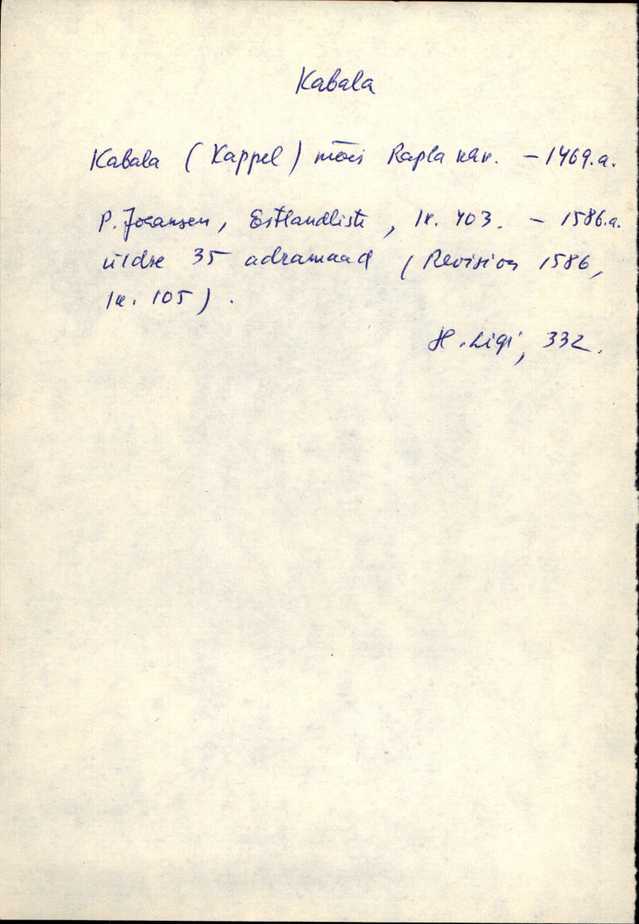 Kabala
Kabala (Kappel) mõis Rapla khk. – 1469.a.
P. Johansen, Estlandliste, lk. 403. – 1586.a.
üldse 35 adramaad (Revision 1586,
lk. 105).
H. Ligi, 332.